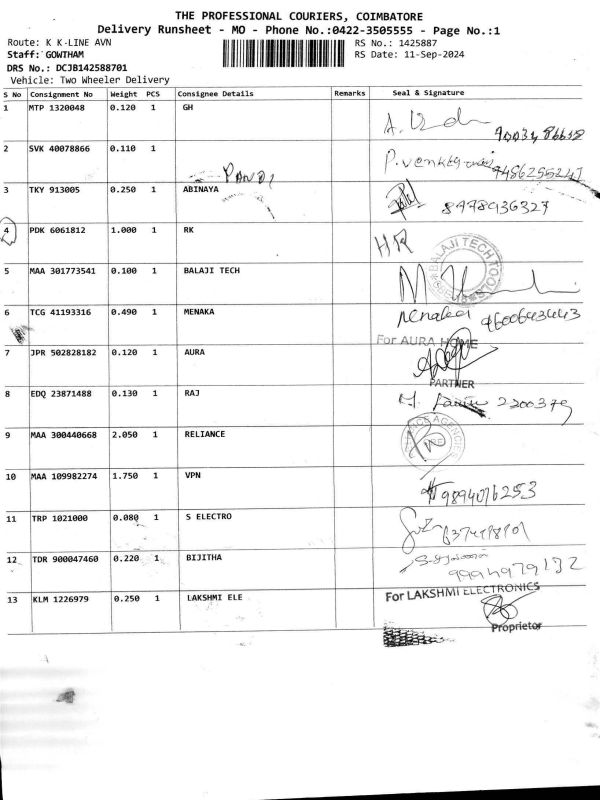 THE PROFESSIONAL COURIERS, COIMBATORE
Delivery Runsheet - MO - Phone No.:0422-3505555 - Page No.:1
Route: K K-LINE AVN
RS No.: 1425887
Staff: GOWTHAM
RS Date: 11-Sep-2024
DRS No.: DCJB142588701
Vehicle: Two Wheeler Delivery
S No Consignment No Weight PCS Consignee Details Remarks Seal & Signature
1 MTP 1320048 0.120 1 GH
2 SVK 40078866 0.110 1
PANDI
3 TKY 913005 0.250 1 ABINAYA 8978936327
4 PDK 6061812 1.000 1 RK HR
BALAJI TECH TOOLS
5 MAA 301773541 0.100 1 BALAJI TECH
6 TCG 41193316 0.490 1 MENAKA Menaka 9600643443
For AURA HOME
7 JPR 502828182 0.120 1 AURA
PARTNER
8 EDQ 23871488 0.130 1 RAJ 2200379
AGENCIES
9 MAA 300440668 2.050 1 RELIANCE
10 MAA 109982274 1.750 1 VPN 9894076253
11 TRP 1021000 0.080 1 S ELECTRO
12 TDR 900047460 0.220 1 BIJITHA 9994979132
13 KLM 1226979 0.250 1 LAKSHMI ELE For LAKSHMI ELECTRONICS
Proprietor